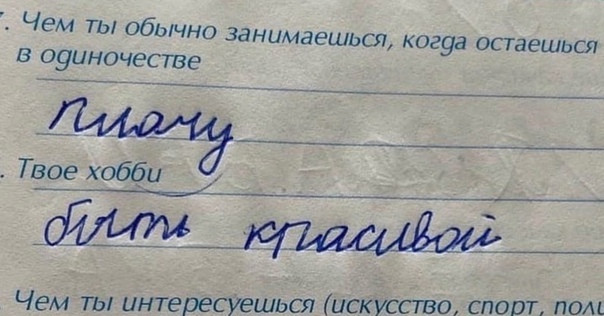 7. Чем ты обычно занимаешься, когда остаешься
в одиночестве
плачу
. Твое хобби
быть красивой
Чем ты интересуешься (искусство, спорт, поли